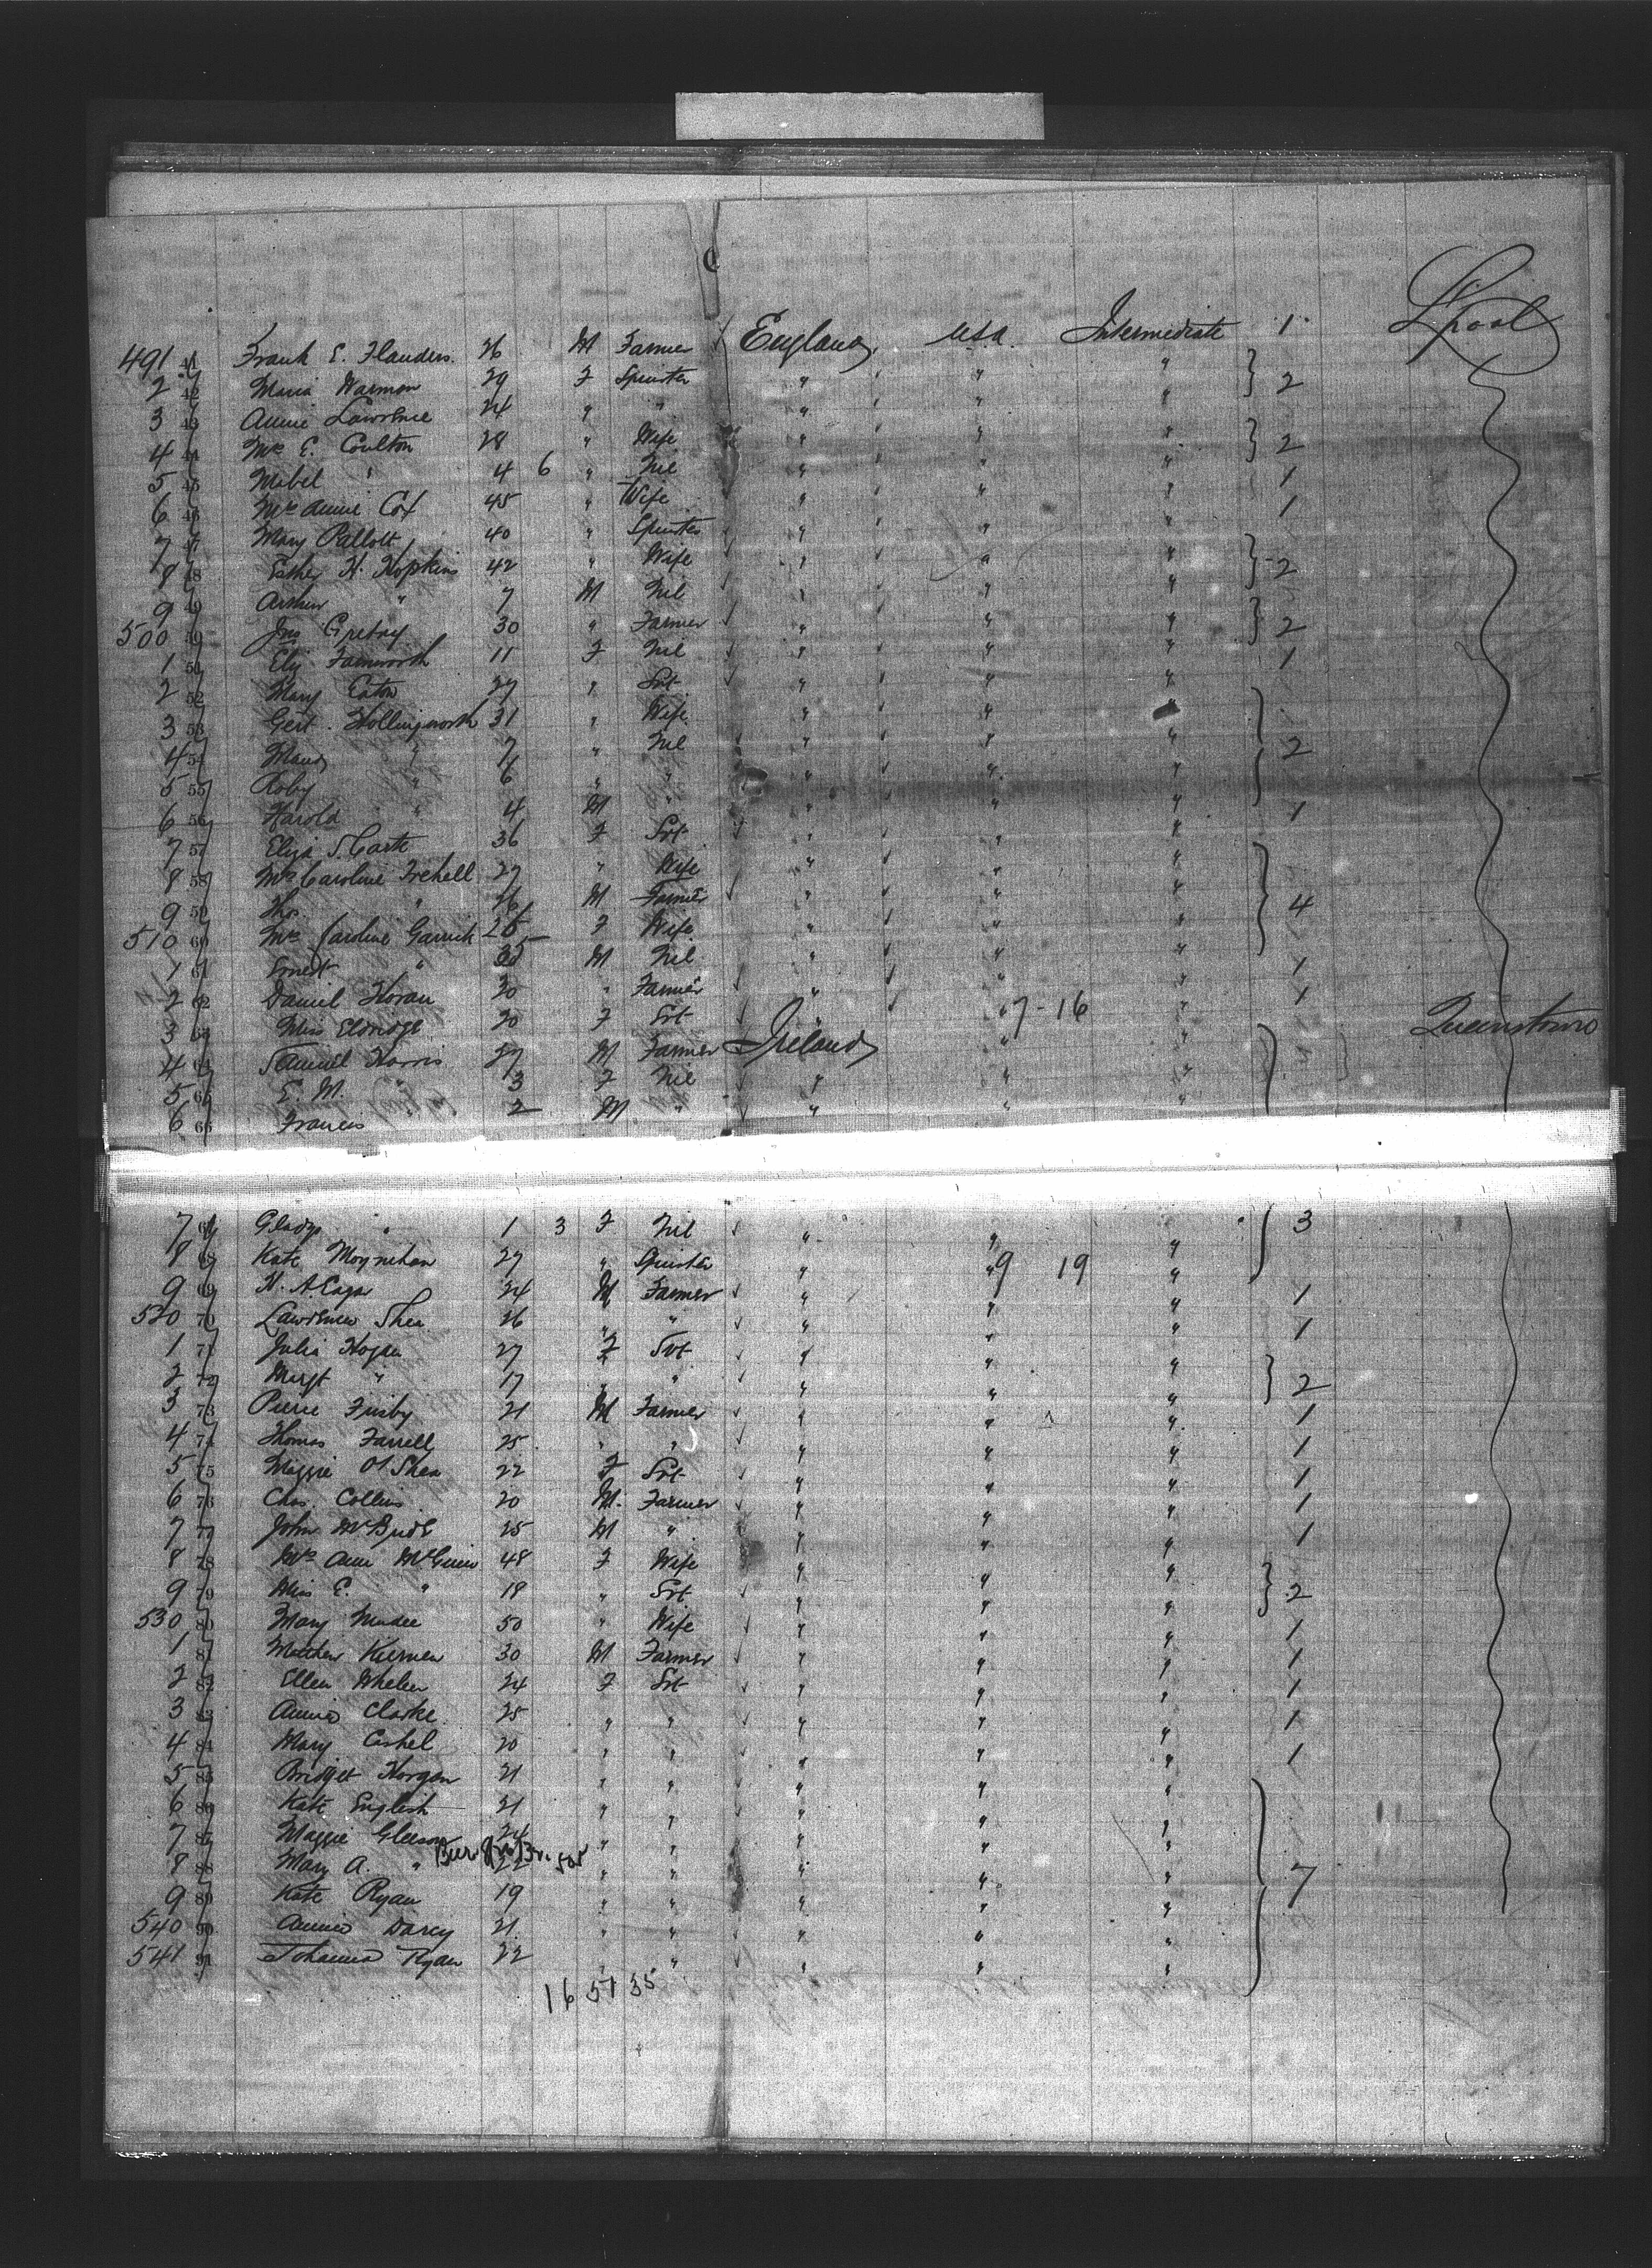 491 41 Frank E. Flanders. 26 M Farmer England USA Intermediate 1 L'pool
2 42 Maria Warmon 29 F Spinster " " " 2
3 43 Annie Lawrence 24 " " " " "
4 44 Mrs E. Coulton 28 " Wife " " " 2
5 45 Mabel " 4 6 " Nil " " "
6 46 Mrs Annie Cox 45 " Wife " " " 1
7 47 Mary Pallott 40 " Spinster " " " 1
8 48 Esther H. Hopkins 42 " Wife " " " 2
9 49 Arthur " 7 M Nil " " "
500 Jno 30 " Farmer " " " 2
1 50 Eliz Farnworth 11 F Nil " " "
2 52 Mary Eaton 27 " Svt " " " 1
3 53 Gert. Hollingworth 31 " Wife " " "
4 54 Maud " 7 " Nil " " " 2
5 55 Roby " 6 " " " " "
6 56 Harold " 4 M " " " "
7 57 Eliza S. Carte 36 F Svt " " " 1
8 58 Mrs Caroline Trehell 27 " Wife " " "
9 59 Thos " 26 M Farmer " " " 4
510 60 Mrs Caroline Garrick 25 F Wife " " "
1 61 Ernest " M Nil " " "
2 62 Daniel Horan 30 " Farmer " " " 1
3 63 Miss Eldridge 20 F Svt " 7-16 " 1
4 64 Samuel Harris 27 M Farmer Ireland " " Queenstown
5 65 E. M. " 3 F Nil " " "
6 66 Francis 2 M " " " "
7 67 Gladys " 1 3 F Nil " " " 3
8 68 Kate Moynihan 27 " Spinster " 9 19 "
9 69 H. A. Eagar 24 M Farmer " " " 1
520 70 Lawrence Shea 26 " " " " " 1
1 71 Julia Hogan 27 F Svt " " "
2 72 Margt " 17 " " " " " 2
3 73 Pierce Frisby 21 M Farmer " " " 1
4 74 Thomas Farrell 25 " " " " " 1
5 75 Maggie O'Shea 22 F Svt " " " 1
6 76 Chas. Collins 20 M. Farmer " " " 1
7 77 John McBride 25 M " " " " 1
8 78 Mrs Ann McGuire 48 F Wife " " "
9 79 Miss E. " 18 " Svt " " " 2
530 80 Mary 50 " Wife " " " 1
1 81 Matthew Kiernan 30 M Farmer " " " 1
2 82 Ellen Whelan 24 F Svt " " " 1
3 83 Annie Clarke 25 " " " " " 1
4 84 Mary Cashel 20 " " " " " 1
5 85 Bridget Horgan 21 " " " " "
6 86 Kate English 21 " " " " "
7 87 Maggie Gleeson 24 " " " " "
8 88 Mary A. " 22 " " " " " 7
9 89 Kate Ryan 19 " " " " "
540 90 Annie Darcy 21 " " " " "
541 91 Johanna Ryan 22 " " " " "
16 51 35